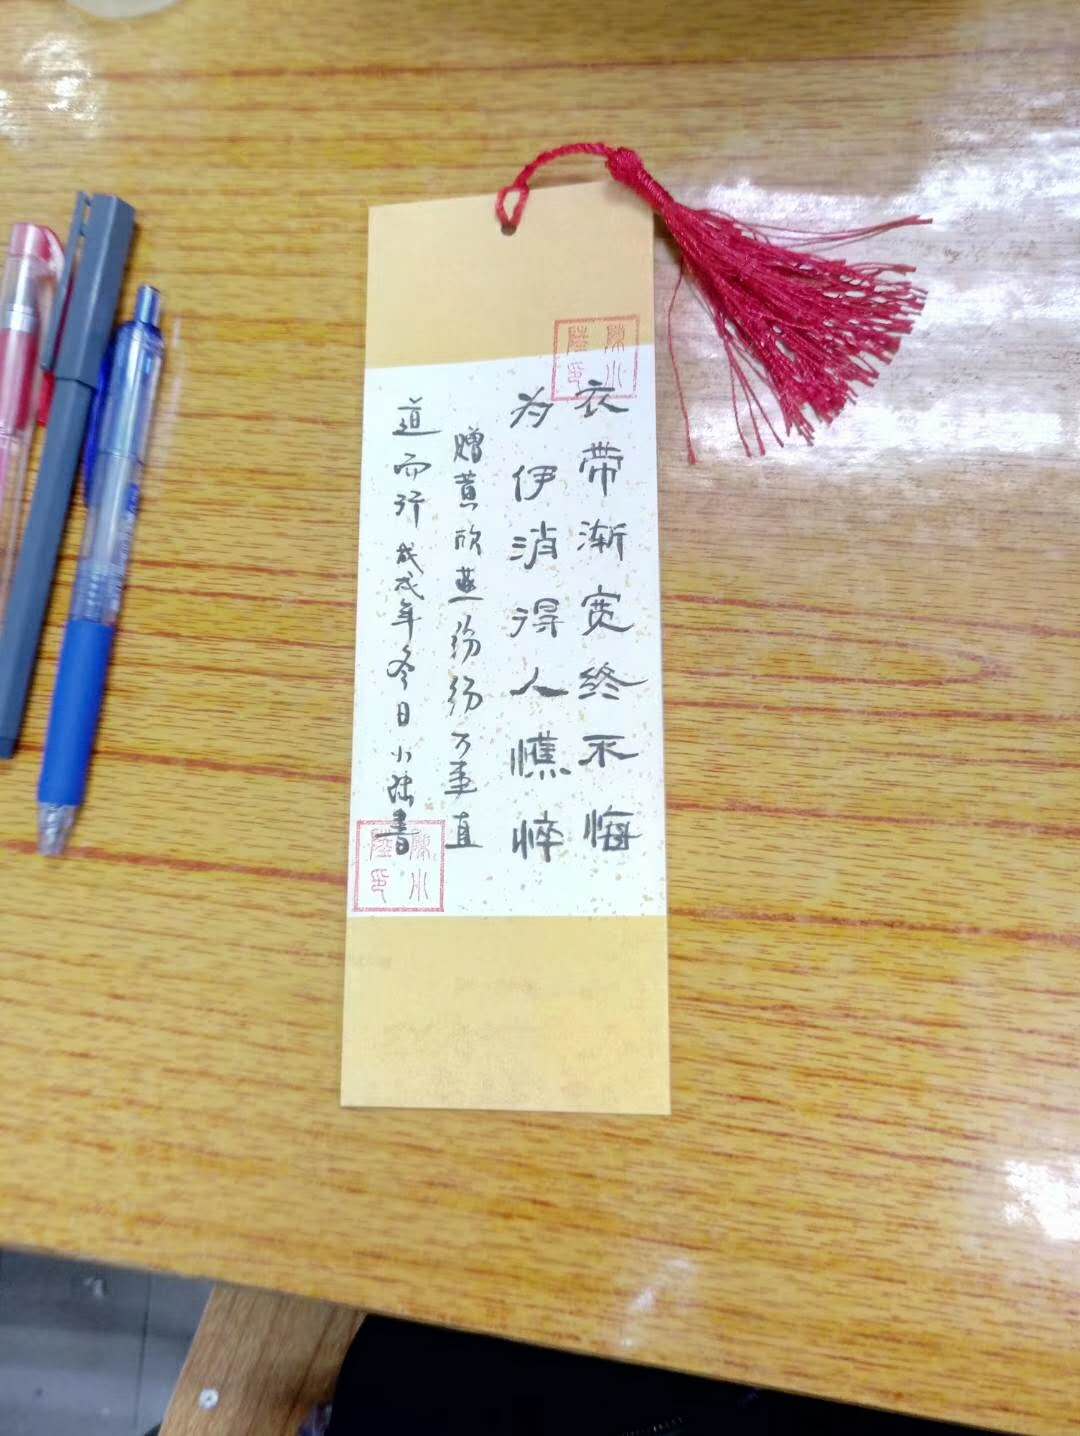 衣帶渐宽终不悔
为伊消得人憔悴
赠黄欣燕纷纷万事直
道而行戊戌年冬日小陆書